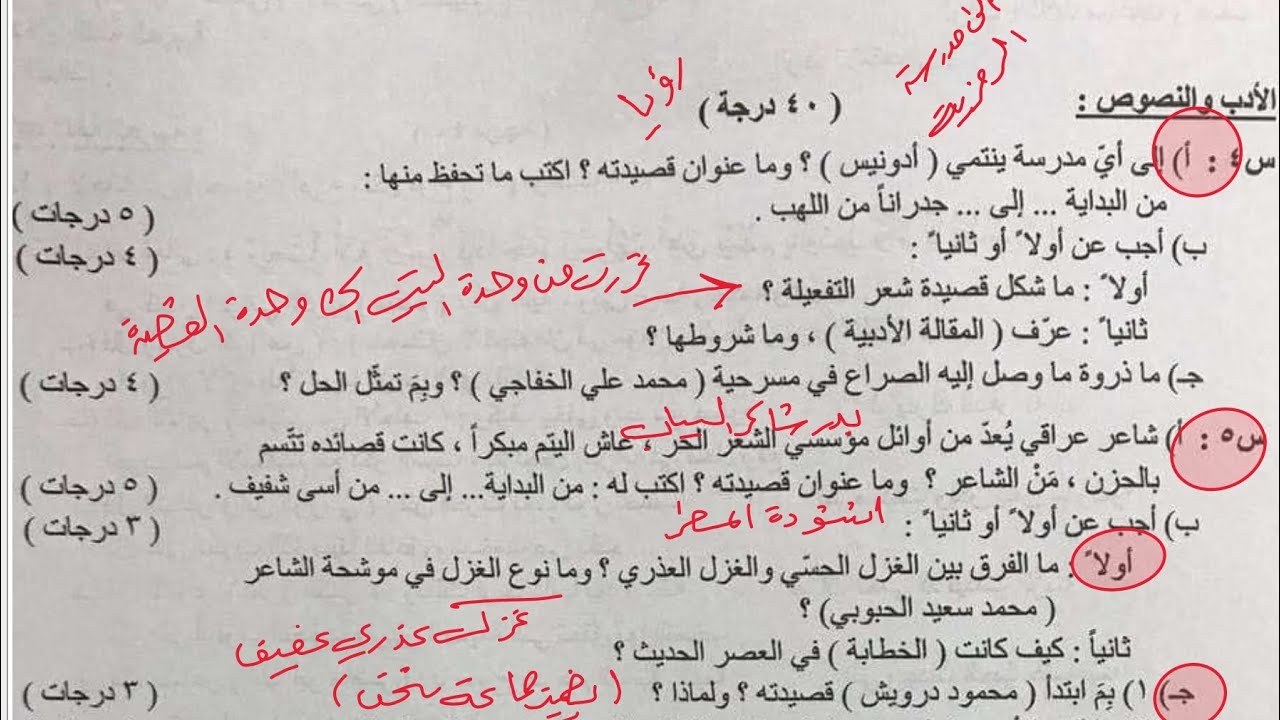 المدرسة
الرمزية
رؤيا
الأدب والنصوص : ( ٤٠ درجة )
س٤ : أ) إلى أيّ مدرسة ينتمي ( أدونيس ) ؟ وما عنوان قصيدته ؟ اكتب ما تحفظ منها :
من البداية ... إلى ... جدراناً من اللهب . ( ٥ درجات )
ب) أجب عن أولاً أو ثانياً : ( ٤ درجات )
تحررت من وحدة البيت الى وحدة القصيدة
أولاً : ما شكل قصيدة شعر التفعيلة ؟
ثانياً : عرّف ( المقالة الأدبية ) ، وما شروطها ؟
جـ) ما ذروة ما وصل إليه الصراع في مسرحية ( محمد علي الخفاجي ) ؟ وبِمَ تمثّل الحل ؟ ( ٤ درجات )
بدر شاكر السياب
س٥ : أ) شاعر عراقي يُعدّ من أوائل مؤسسي الشعر الحر ، عاش اليتم مبكراً ، كانت قصائده تتّسم
بالحزن ، مَنْ الشاعر ؟ وما عنوان قصيدته ؟ اكتب له : من البداية... إلى ... من أسى شفيف . ( ٥ درجات )
ب) أجب عن أولاً أو ثانياً : انشودة المطر ( ٣ درجات )
أولاً : ما الفرق بين الغزل الحسّي والغزل العذري ؟ وما نوع الغزل في موشحة الشاعر
( محمد سعيد الحبوبي) ؟
غزل عذري عفيف
ثانياً : كيف كانت ( الخطابة ) في العصر الحديث ؟
جـ) ١) بِمَ ابتدأ ( محمود درويش ) قصيدته ؟ ولماذا ؟ ( ٣ درجات )